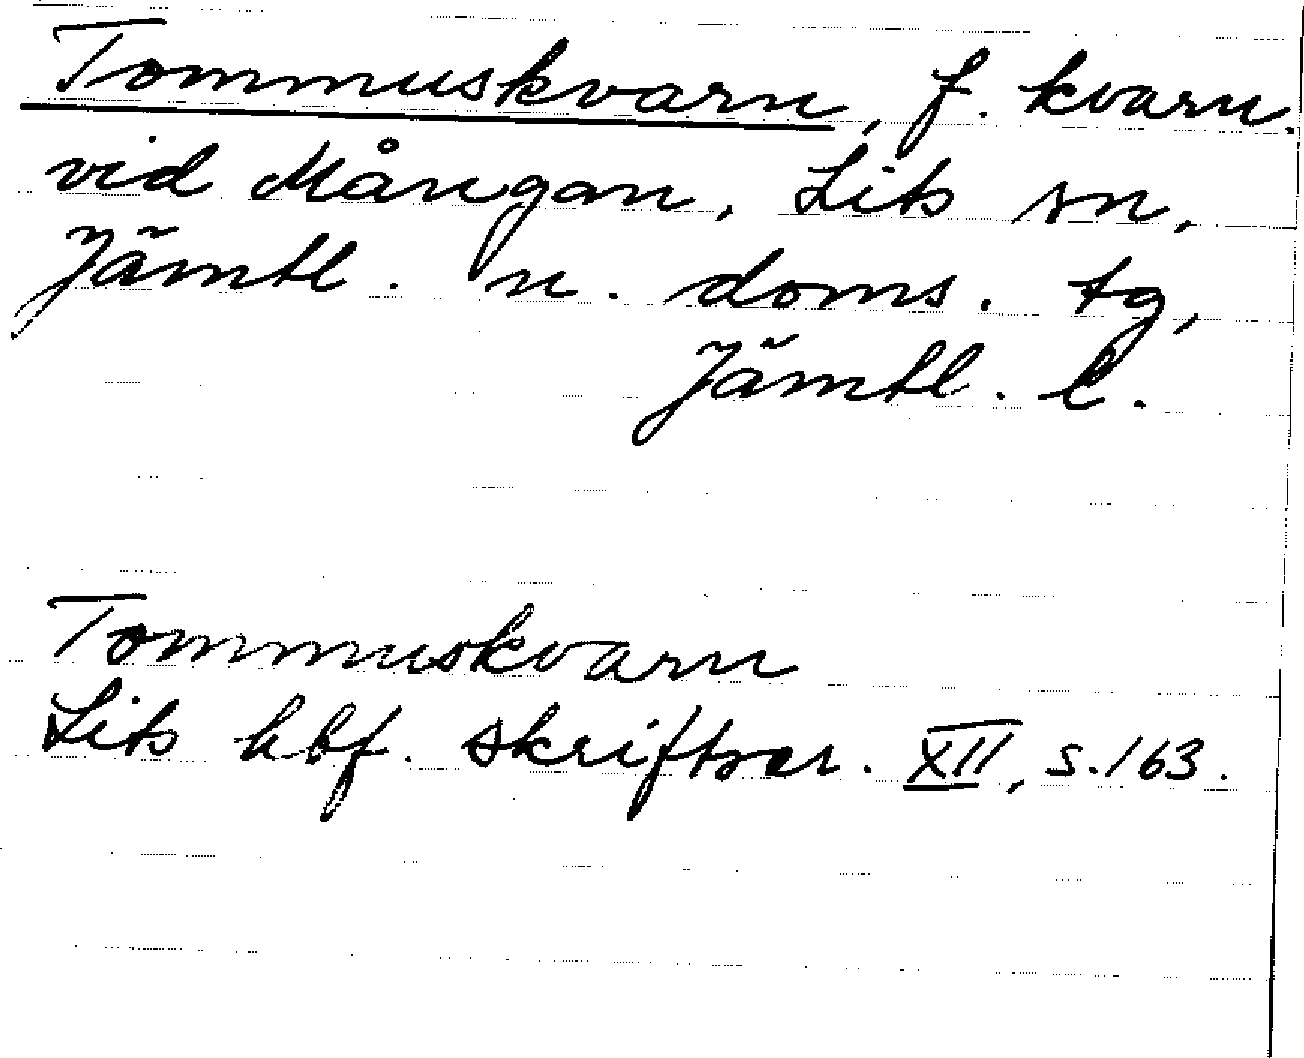 Tommuskvarn, f. kvarn.
vid Mångan, Lits sn,
Jämtl. n. doms. tg,
Jämtl. l.
Tommuskvarn
Lits hbf. skriftser. XII, s. 163.